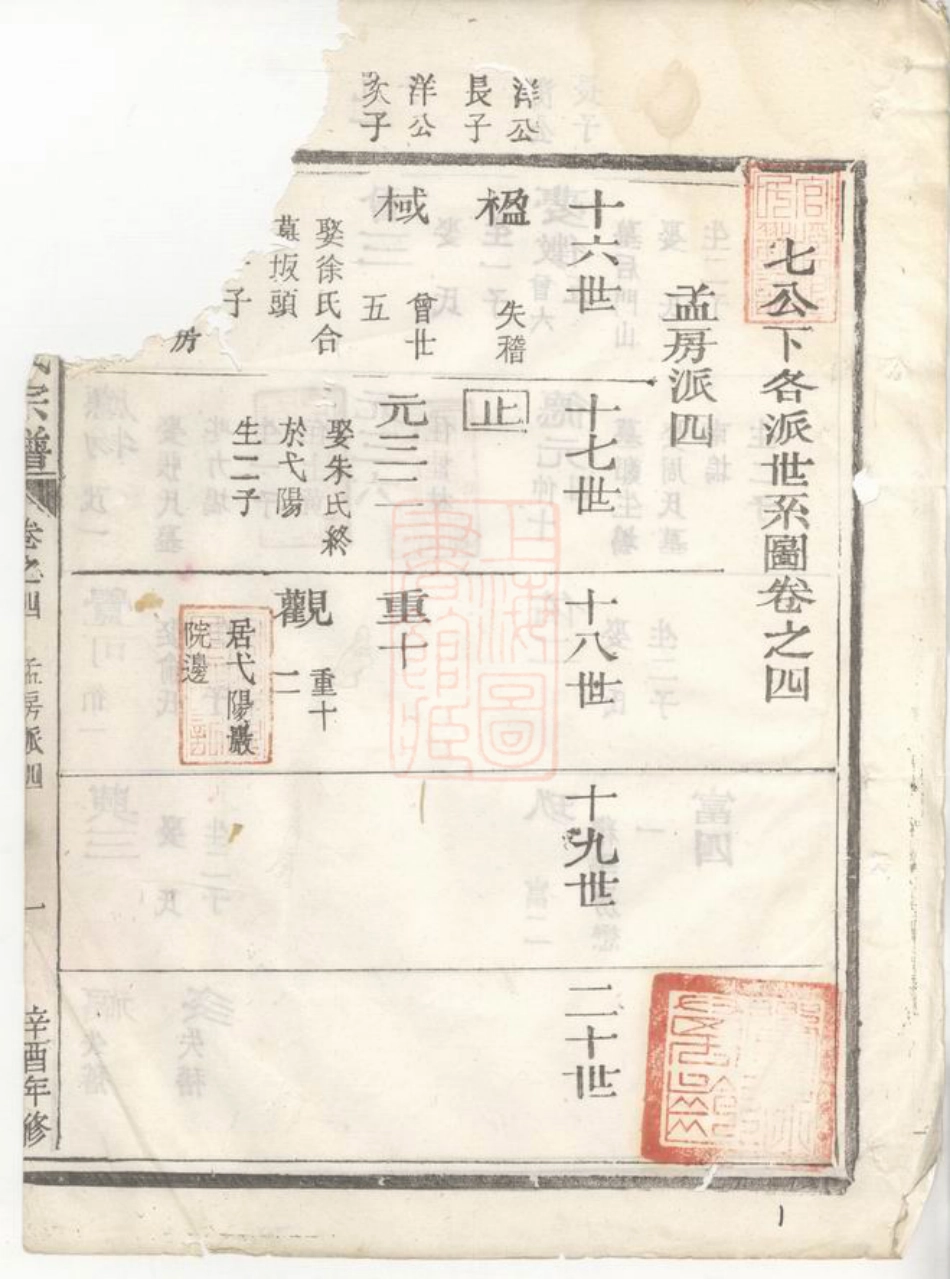 七公下各派世系圖卷之四
孟房派四
十六世
十七世
十八世
十九世
二十世
洋公
長子
楹
失稽
止
洋公
次子
棫
曾廿
五
娶徐氏合
墓坂頭
子
房
元三二
娶朱氏終
於弋陽
生二子
重十
觀
重十
二
居弋陽巖
院邊
宗譜
卷之四
孟房派四
一
辛酉年修
上海圖書館藏
1